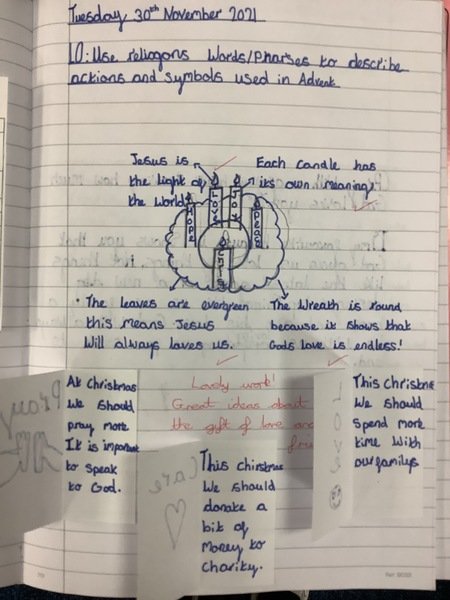 Tuesday 30th November 2021
LO: Use reliogons words/Pharses to describe
actions and symbols used in Advent
Jesus is
the light of
the world
Each candle has
its own meaning!
Hope
Love
Joy
Peace
• The leaves are evergreen
this means Jesus
will always loves us.
The Wreath is round
because it shows that
Gods love is endless!
Lovely work!
Great ideas about
the gift of love and
Pray
At Christmas
We should
pray more
It is important
to speak
to God.
Care
This Chirstmas
We should
donate a
bit of
Money to
Charity.
Love
This Christme
We should
spend more
time with
our familys